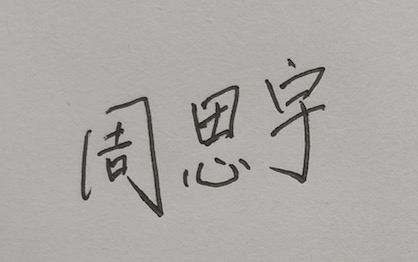 周思宇